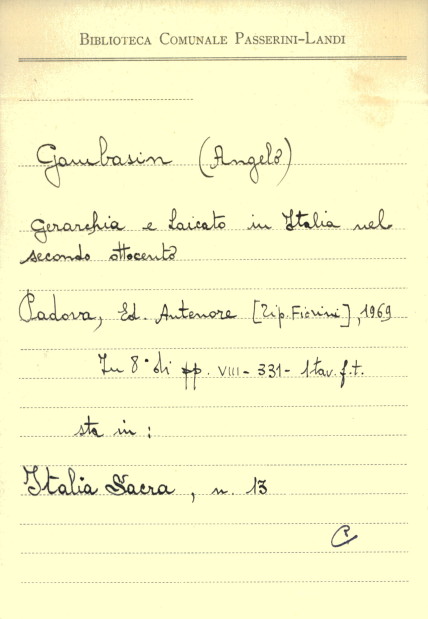 BIBLIOTECA COMUNALE PASSERINI-LANDI
Gambasin (Angelo)
Gerarchia e Laicato in Italia nel
secondo ottocento
Padova, Ed. Antenore [Tip. Fiorini], 1969
In 8° di pp. VIII - 331 - 1 tav. f.t.
sta in :
Italia Sacra , n. 13